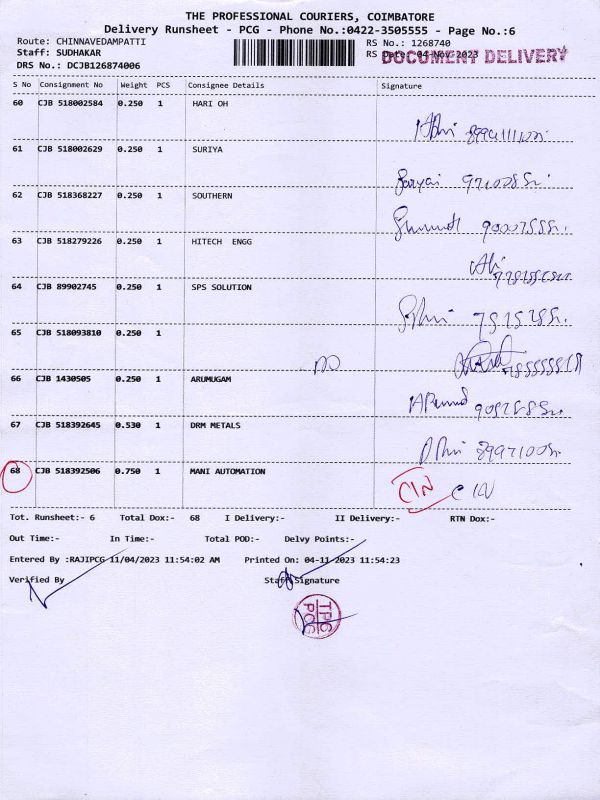 THE PROFESSIONAL COURIERS, COIMBATORE
Delivery Runsheet - PCG - Phone No.:0422-3505555 - Page No.:6
Route: CHINNAVEDAMPATTI RS No.: 1268740
Staff: SUDHAKAR RS Date: 04-Nov-2023 DOCUMENT DELIVERY
DRS No.: DCJB126874006
S No Consignment No Weight PCS Consignee Details Signature
60 CJB 518002584 0.250 1 HARI OH
61 CJB 518002629 0.250 1 SURIYA
62 CJB 518368227 0.250 1 SOUTHERN
63 CJB 518279226 0.250 1 HITECH ENGG
64 CJB 89902745 0.250 1 SPS SOLUTION
65 CJB 518093810 0.250 1
66 CJB 1430505 0.250 1 ARUMUGAM
67 CJB 518392645 0.530 1 DRM METALS
68 CJB 518392506 0.750 1 MANI AUTOMATION CIN CIN
Tot. Runsheet:- 6 Total Dox:- 68 I Delivery:- II Delivery:- RTN Dox:-
Out Time:- In Time:- Total POD:- Delvy Points:-
Entered By :RAJIPCG 11/04/2023 11:54:02 AM Printed On: 04-11-2023 11:54:23
Verified By Staff Signature
TPC
PCG